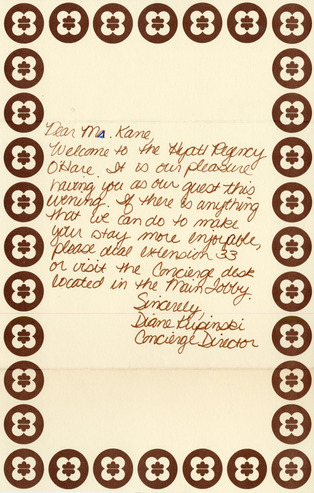 Dear Ms. Kane,
Welcome to the Hyatt Regency
O'Hare. It is our pleasure
having you as our guest this
evening. If there is anything
that we can do to make
your stay more enjoyable,
please dial extension 33
or visit the Concierge desk
located in the Main Lobby.
Sincerely,
Diane
Concierge Director